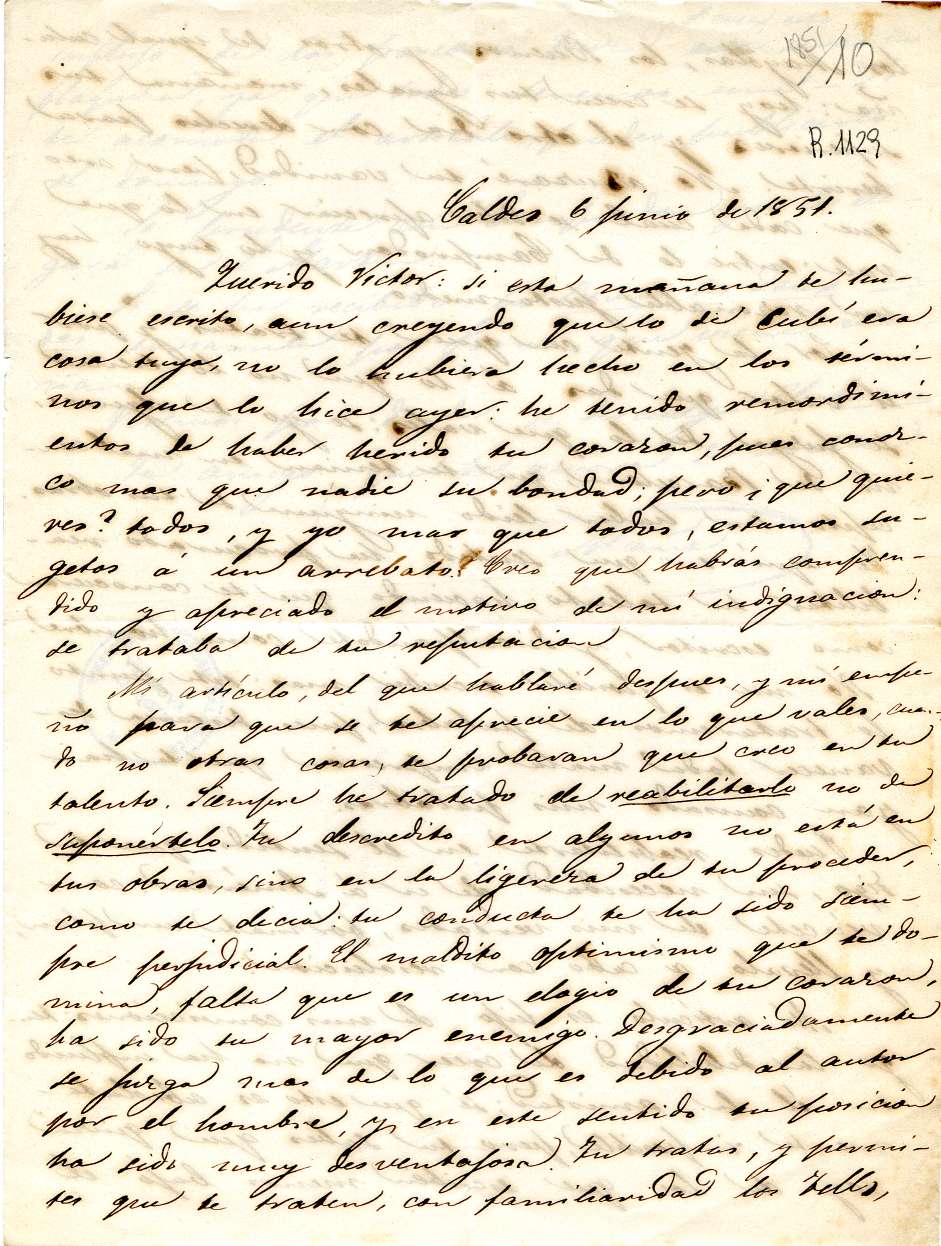 1851/10
R. 1129
Caldes 6 junio de 1851.
Querido Victor: si esta mañana te hu-
biese escrito, aun creyendo que lo de Cubí era
cosa tuya, no lo hubiera hecho en los térmi-
nos que lo hice ayer: he tenido remordimi-
entos de haber herido tu corazon, pues conoz-
co mas que nadie su bondad; pero ¡que quie-
res? todos, y yo mas que todos, estamos su-
getos á un arrebato. Creo que habrás compren-
dido y apreciado el motivo de mi indignacion:
se trataba de tu reputacion
Mi artículo, del que hablaré despues, y mi empe-
ño para que se te aprecie en lo que vales, cuan-
do no otras cosas, te probaran que creo en tu
talento. Siempre he tratado de reabilitarlo no de
suponértelo. Tu descredito en algunos no está en
tus obras, sino en la ligereza de tu proceder,
como te decia: tu conducta te ha sido siem-
pre perjudicial. El maldito optimismo que te do-
mina, falta que es un elogio de tu corazon,
ha sido tu mayor enemigo. Desgraciadamente
se juzga mas de lo que es debido al autor
por el hombre, y en este sentido tu posicion
ha sido muy desventajosa. Tu tratas, y permi-
tes que te traten, con familiaridad los